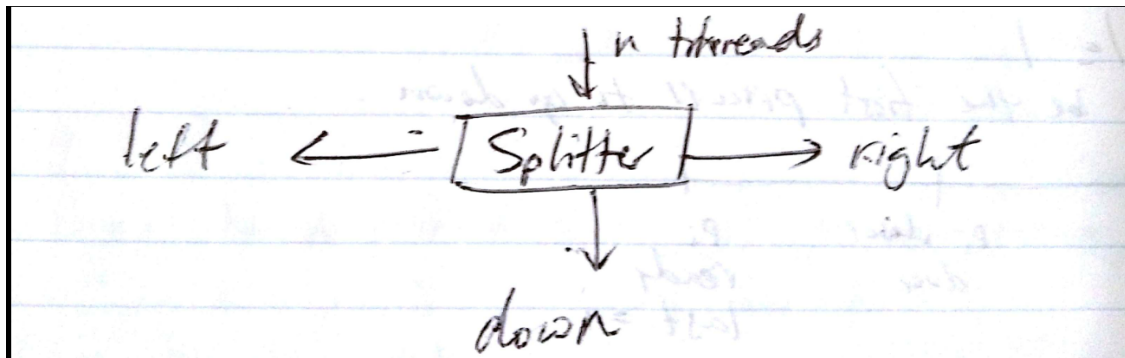 n threads
left Splitter right
down